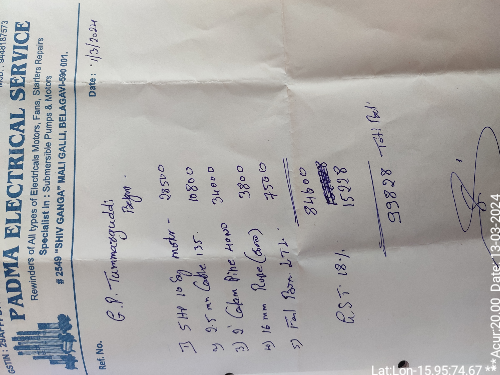 PADMA ELECTRICAL SERVICE
Rewinders of All types of Electricals Motors, Fans, Starters Repairs
Specialist in : Submersible Pumps & Motors
# 2549 "SHIV GANGA" MALI GALLI, BELAGAVI-590 001.
Ref. No. Date : 1/3/2024
G.P. Tummarguddi
1) 5 HP 10 Stg motor - 28500
2) 2.5 mm Cable 135. 10800
3) 2" Pipe 34000
4) 16 mm Rope 3800
5) 7500
84600
GST. 18% 15228
99828 Total
Lat:Lon-15.95:74.67
**Acur:20.00 Date: 13:03:2024